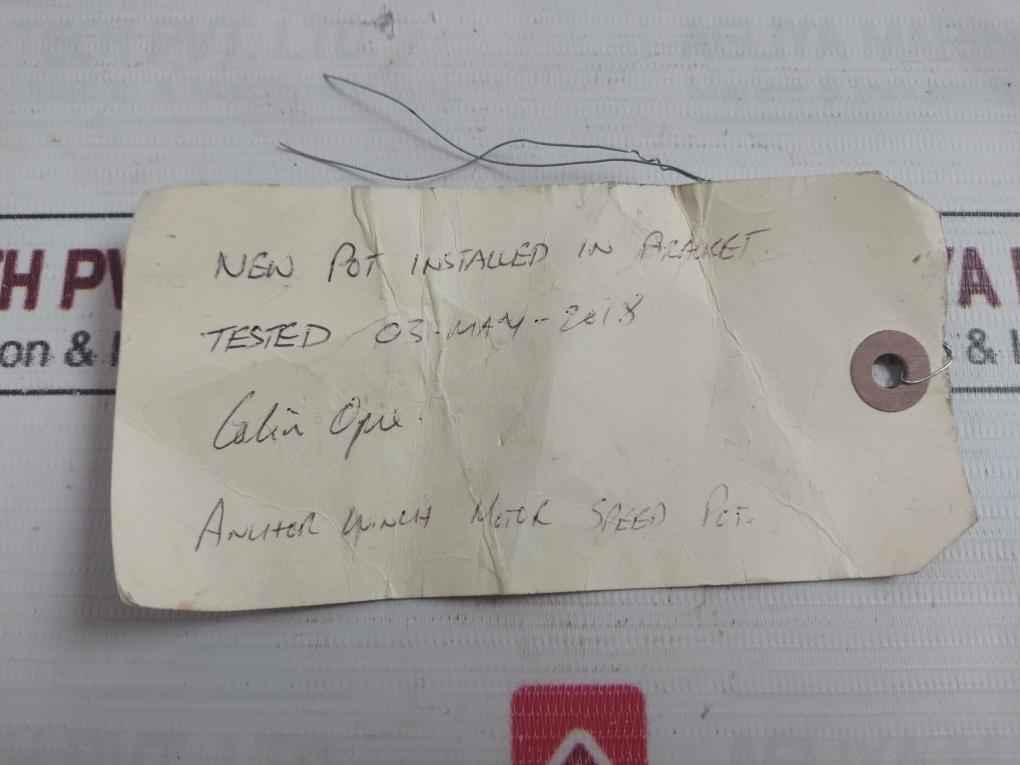 NEW POT INSTALLED IN BRACKET
TESTED 03-MAY-2018
Colin
ANCHOR WINCH MOTOR SPEED POT.
H PV
VA
on &
& I